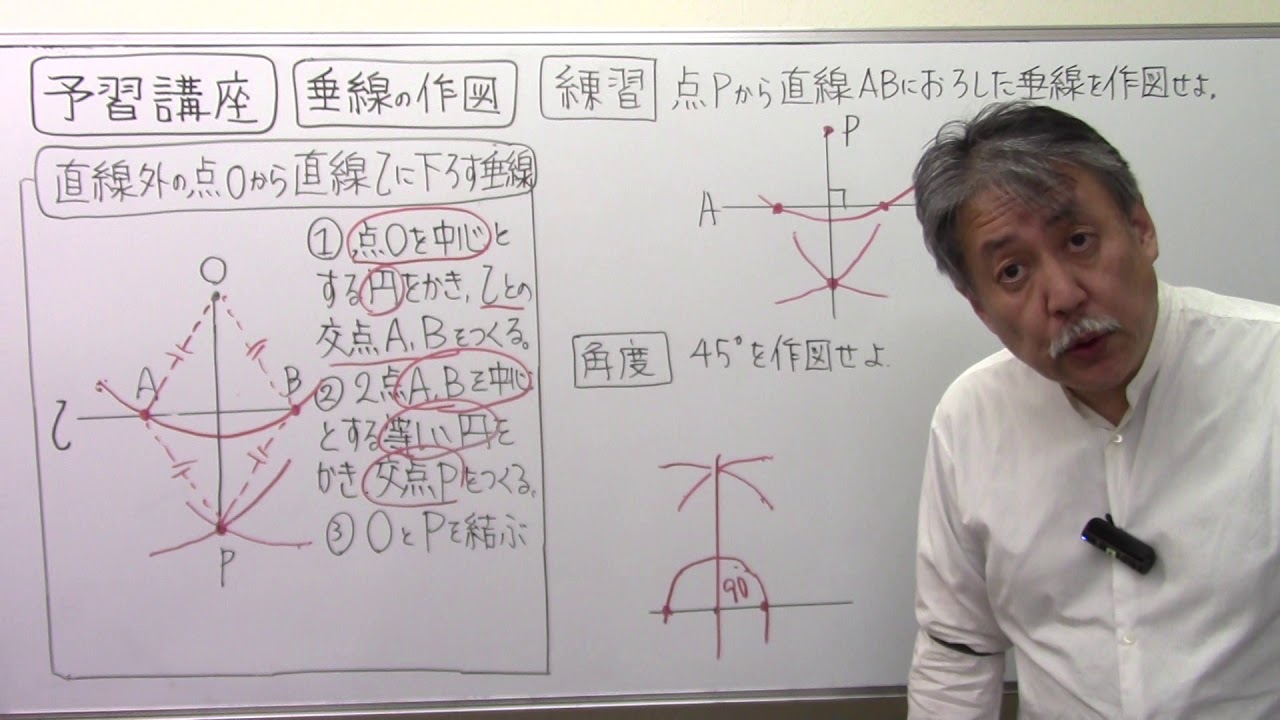 予習講座
垂線の作図
直線外の点Oから直線lに下ろす垂線
①点Oを中心と
する円をかき,lとの
交点A,Bをつくる。
②2点A,Bを中心
とする等しい円を
かき,交点Pをつくる。
③OとPを結ぶ
O
A
B
l
P
練習 点Pから直線ABにおろした垂線を作図せよ.
P
A
角度 45°を作図せよ.
90